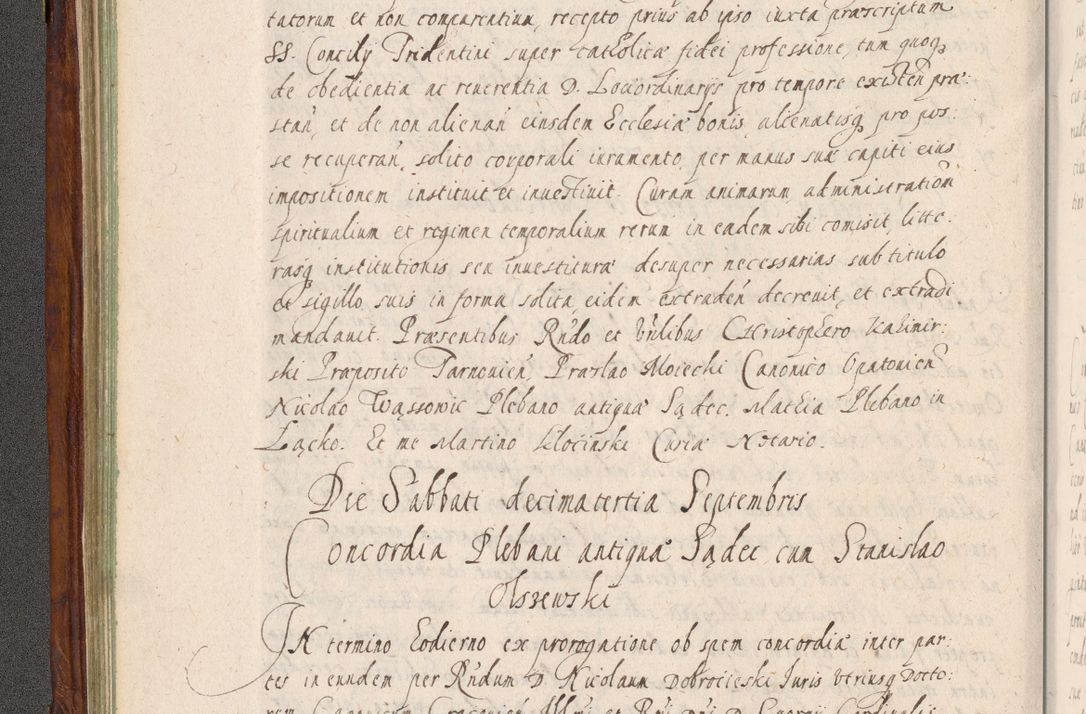 tatorum et non comparentium, recepto prius ab ipso iuxta præscriptum
SS. Concily Tridentini super catholicæ fidei professione, tum quoq
de obedientia ac reuerentia D. Lociordinarys pro tempore existen præ:
stan, et de non alienan eiusdem Ecclesiæ bonis, alienatisq pro pos:
se recuperan, solito corporali iuramento per manus suæ capiti eius
impositionem instituit et inuestiuit. Curam animarum administration
spiritualium et regimen temporalium rerum in eadem sibi comisit, litte:
rasq institutionis seu inuestituræ desuper necessarias sub titulo
et sigillo suis in forma solita, eidem extraden decreuit, et extradi
mandauit. Præsentibus Rndo et Vnlibus Christophero Kazimir:
ski Præposito Tarnouien, Praslao Moiecki Canonico Opatouien
Nicolao Wąssowic Plebano antiquæ Sądec. Mathia Plebano in
Łącko. Et me Martino Kłocinski Curiæ Notario.
Die Sabbati decimatertia Septembris
Concordia Plebani antiquæ Sądec cum Stanislao
Olszewski
IN termino hodierno ex prorogatione ob spem concordiæ inter par:
tes in eundem per Rndum D. Nicolaum Dobrocieski Iuris Vtriusq Docto:
rem Canonicum Cracouien Illmi et Rmi Dni D. Georgii Cardinalis